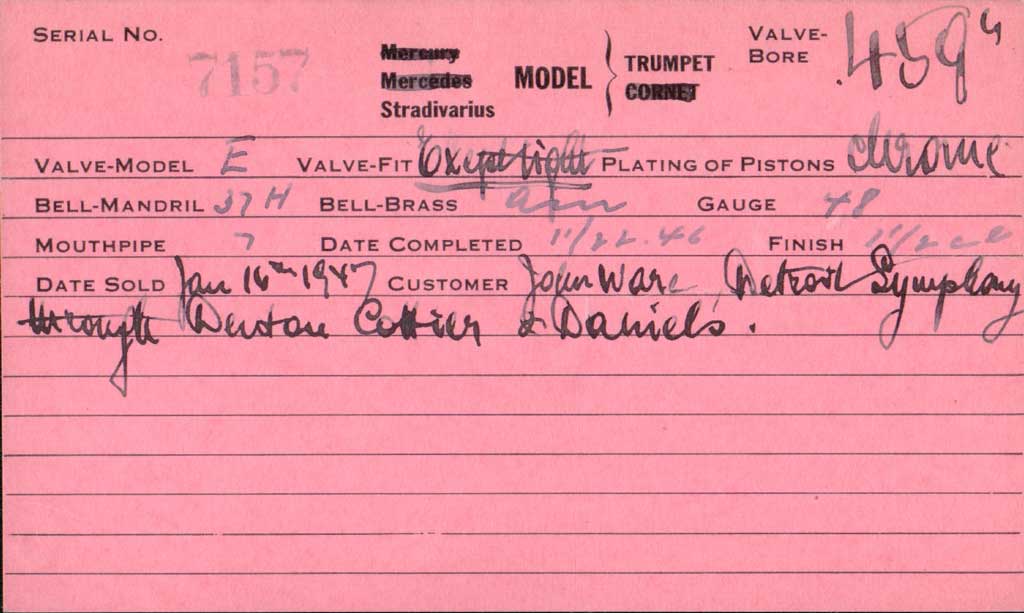 SERIAL NO. 7157
Mercury
Mercedes
Stradivarius
MODEL
TRUMPET
CORNET
VALVE-
BORE .459"
VALVE-MODEL E VALVE-FIT Exept tight PLATING OF PISTONS chrome
BELL-MANDRIL 37 H BELL-BRASS GAUGE 48
MOUTHPIPE 7 DATE COMPLETED 11/22.46 FINISH
DATE SOLD Jan 16th 1947 CUSTOMER John Ware, Detroit Symphony
through Denton Cottier & Daniels.